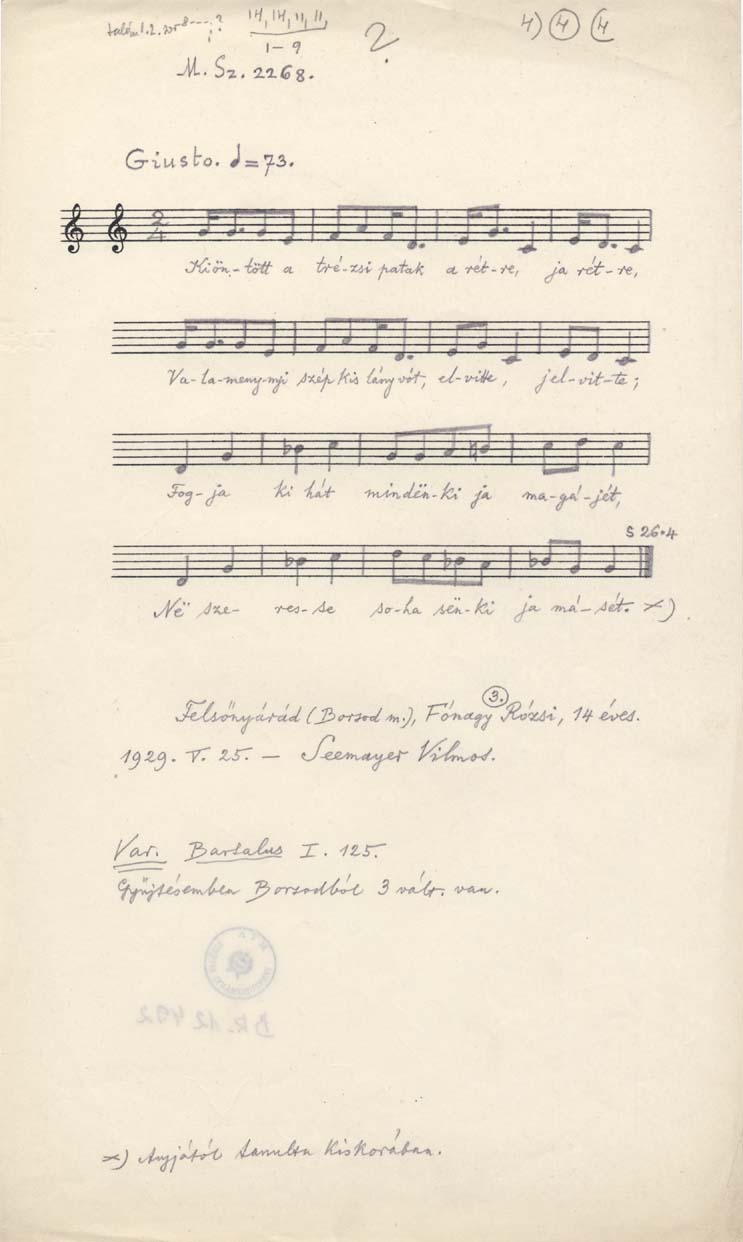 talán 1. 2. sor 8 ----; ?
14, 14, 11, 11,
1 – 9
2.
4) 4 (4
M. Sz. 2268.
Giusto. 𝅗𝅥 = 73.
2
4
Kiön-tött a tré-zsi patak a rét-re, ja rét-re,
Va-la-meny-nyi szép kis lány vót, el-vitte, jel-vit-te;
Fog-ja ki hát mindën-ki ja ma-gá-jét,
S 26•4
Në sze- res-se so-ha sën-ki ja má-sét. ×)
3.
Felsőnyárád (Borsod m.), Fónagy Rózsi, 14 éves.
1929. V. 25. — Seemayer Vilmos.
Var. Bartalus I. 125.
Gyűjtésemben Borsodból 3 vált. van.
BR. 12492
×) Anyjától tanulta kiskorában.